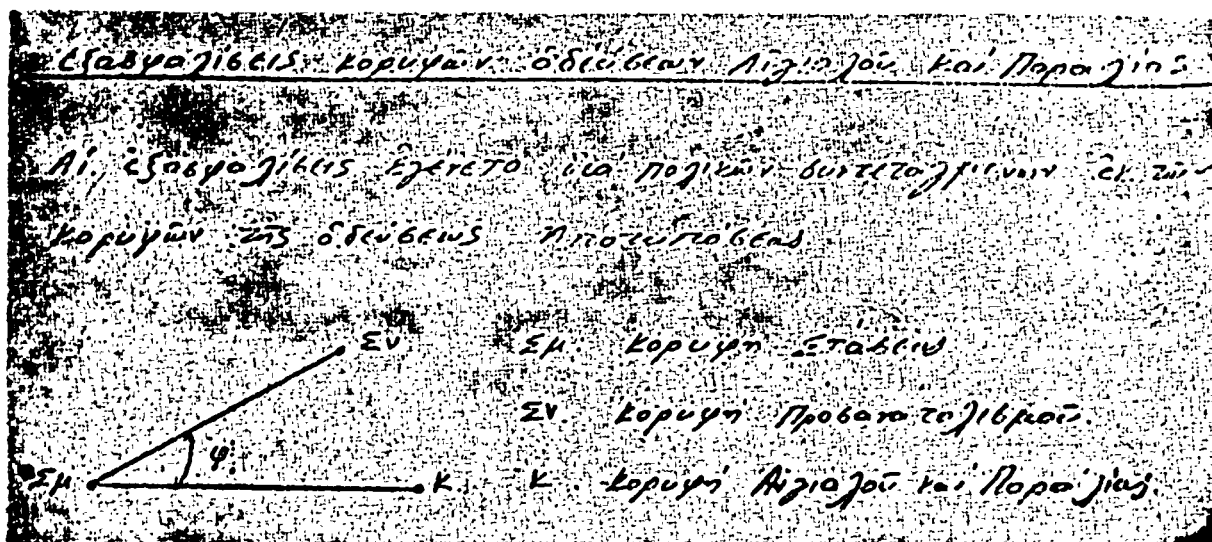 Ἐξασφαλίσεις κορυφῶν ὁδεύσεων Αἰγιαλοῦ καὶ Παραλίας
Αἱ ἐξασφαλίσεις ἐγένετο διά πολικῶν συντεταγμένων ἐκ τῶν
κορυφῶν τῆς ὁδεύσεως Ἀποτυπώσεως
Σν
Σμ
φ
Κ
Σμ. Κορυφή Στάσεως
Σν. Κορυφή Προσανατολισμοῦ.
Κ. Κορυφή Αἰγιαλοῦ καί Παραλίας.